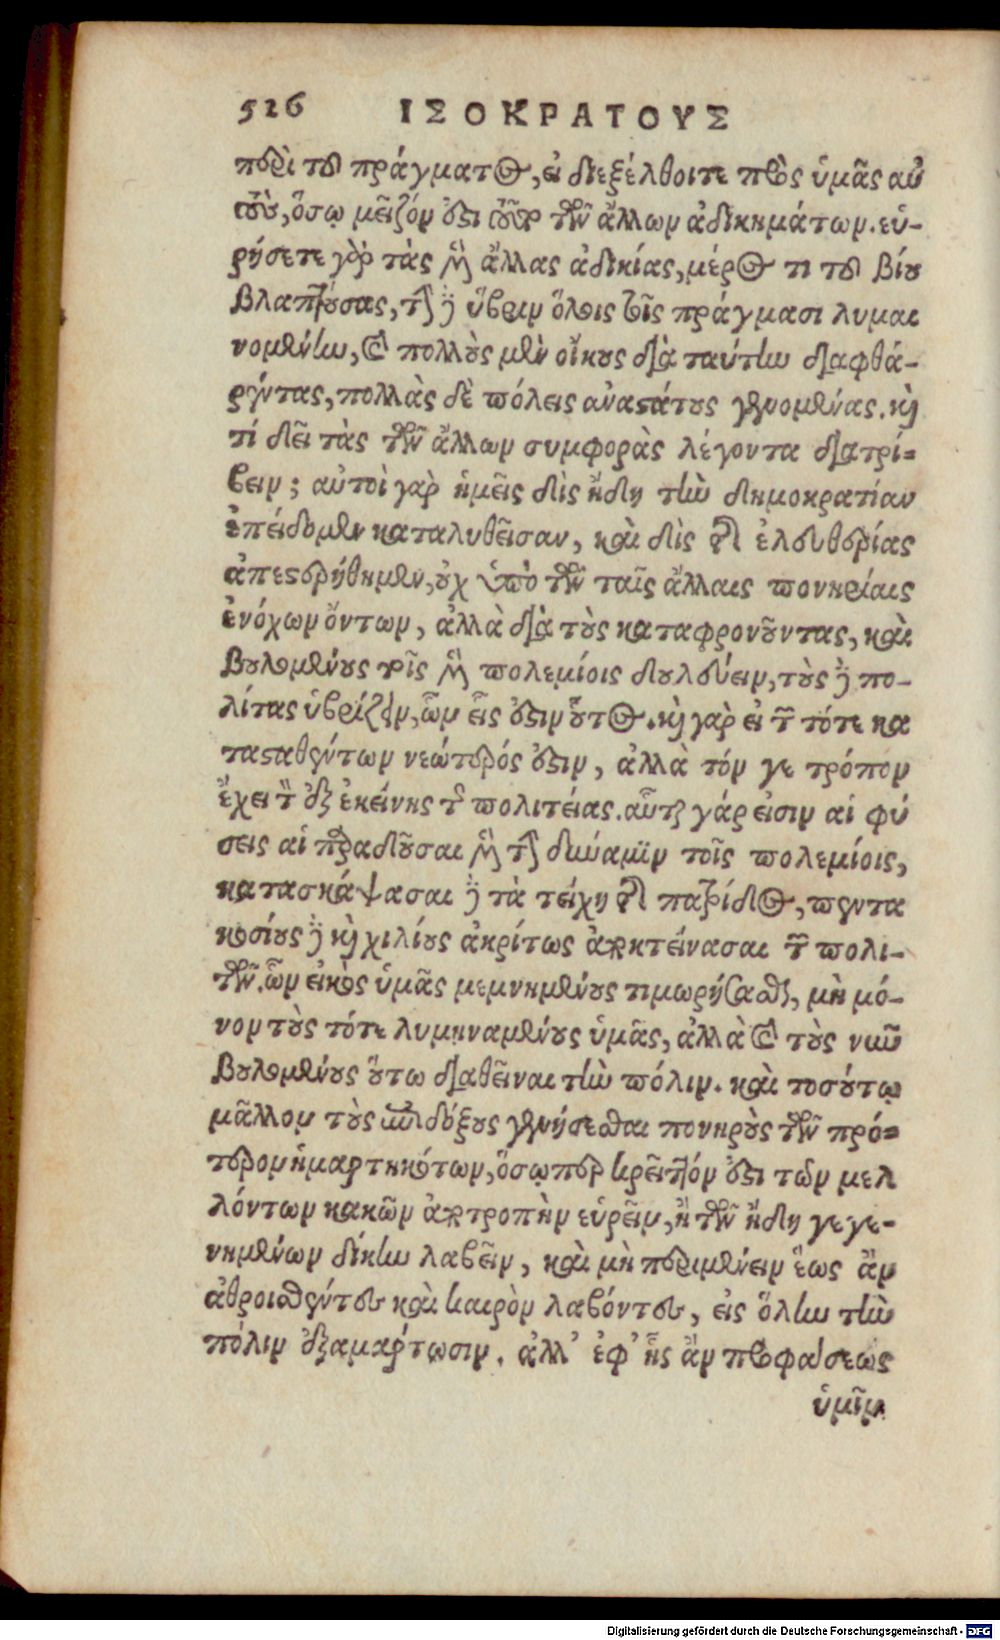 526 ΙΣΟΚΡΑΤΟΥΣ
περὶ τοῦ πράγματος, εἰ διεξέλθοιτε πρὸς ὑμᾶς αὐ
τοὺς, ὅσῳ μεῖζόν ἐστι τοῦτο τῶν ἄλλων ἀδικημάτων. εὑ-
ρήσετε γὰρ τὰς μὲν ἄλλας ἀδικίας, μέρος τι τοῦ βίου
βλαπτούσας, τὴν δὲ ὕβριν ὅλοις τοῖς πράγμασι λυμαι
νομένην, καὶ πολλοὺς μὲν οἴκους διὰ ταύτην διαφθα-
ρέντας, πολλὰς δὲ πόλεις ἀναστάτους γενομένας. καὶ
τί δεῖ τὰς τῶν ἄλλων συμφορὰς λέγοντα διατρί-
βειν; αὐτοὶ γὰρ ἡμεῖς δὶς ἤδη τὴν δημοκρατίαν
ἐπείδομεν καταλυθεῖσαν, καὶ δὶς τῆς ἐλευθερίας
ἀπεστερήθημεν, οὐχ ὑπὸ τῶν ταῖς ἄλλαις πονηρίαις
ἐνόχων ὄντων, ἀλλὰ διὰ τοὺς καταφρονοῦντας, καὶ
βουλομένους τοῖς μὲν πολεμίοις δουλεύειν, τοὺς δὲ πο-
λίτας ὑβρίζειν, ὧν εἷς ἐστιν οὗτος. καὶ γὰρ εἰ τῶν τότε κα
τασταθέντων νεώτερός ἐστιν, ἀλλὰ τόν γε τρόπον
ἔχει τὸν ἐξ ἐκείνης τῆς πολιτείας. αὗται γάρ εἰσιν αἱ φύ
σεις αἱ παραδοῦσαι μὲν τὴν δύναμιν τοῖς πολεμίοις,
κατασκάψασαι δὲ τὰ τείχη τῆς πατρίδος, πεντα
κοσίους δὲ καὶ χιλίους ἀκρίτως ἀποκτείνασαι τῶν πολι-
τῶν. ὧν εἰκὸς ὑμᾶς μεμνημένους τιμωρήσασθαι, μὴ μό-
νον τοὺς τότε λυμηναμένους ὑμᾶς, ἀλλὰ καὶ τοὺς νῦν
βουλομένους οὕτω διαθεῖναι τὴν πόλιν. καὶ τοσούτῳ
μᾶλλον τοὺς ἐπιδόξους γενήσεσθαι πονηροὺς τῶν πρό-
τερον ἡμαρτηκότων, ὅσῳπερ κρεῖττόν ἐστι τῶν μελ
λόντων κακῶν ἀποτροπὴν εὑρεῖν, ἢ τῶν ἤδη γεγε-
νημένων δίκην λαβεῖν, καὶ μὴ περιμένειν ἕως ἂν
ἀθροισθέντες καὶ καιρὸν λαβόντες, εἰς ὅλην τὴν
πόλιν ἐξαμάρτωσιν. ἀλλ' ἐφ' ἧς ἂν προφάσεως
ὑμῖν
Digitalisierung gefördert durch die Deutsche Forschungsgemeinschaft - DFG